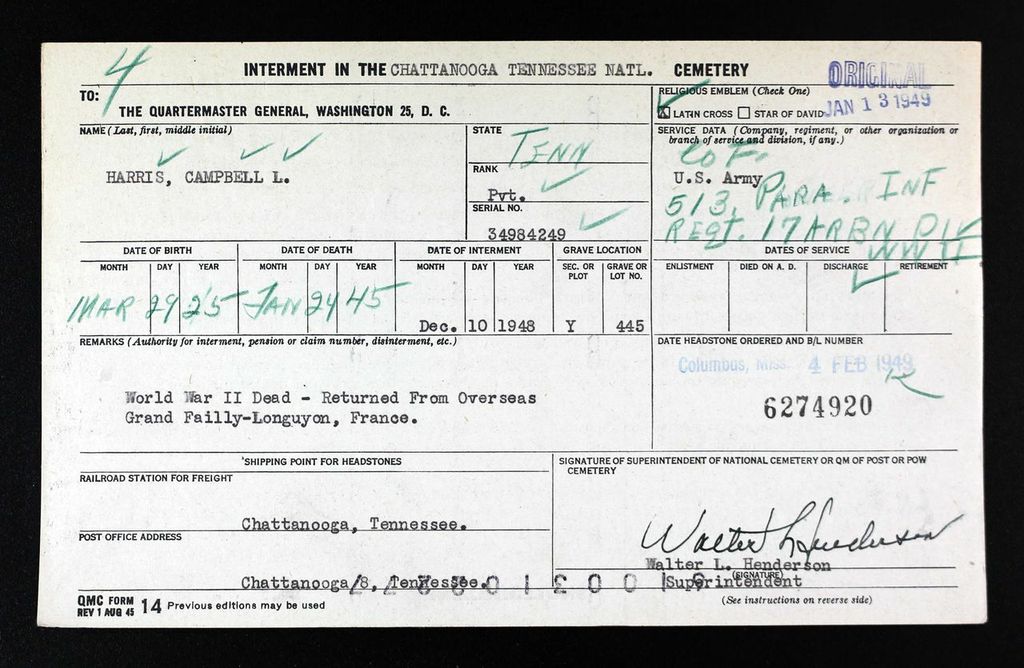 4
INTERMENT IN THE CHATTANOOGA TENNESSEE NATL. CEMETERY
ORIGINAL
JAN 13 1949
TO:
THE QUARTERMASTER GENERAL, WASHINGTON 25, D. C.
RELIGIOUS EMBLEM (Check One)
☒ LATIN CROSS ☐ STAR OF DAVID
NAME (Last, first, middle initial)
HARRIS, CAMPBELL L.
STATE
TENN
RANK
Pvt.
SERIAL NO.
34984249
SERVICE DATA (Company, regiment, or other organization or
branch of service and division, if any.)
Co F.
U.S. Army
513, PARA. INF
REGT. 17 ARBN DIV
WW II
DATE OF BIRTH
MONTH DAY YEAR
MAR 29 25
DATE OF DEATH
MONTH DAY YEAR
JAN 24 45
DATE OF INTERMENT
MONTH DAY YEAR
Dec. 10 1948
GRAVE LOCATION
SEC. OR PLOT
GRAVE OR LOT NO.
Y 445
DATES OF SERVICE
ENLISTMENT DIED ON A. D. DISCHARGE RETIREMENT
REMARKS (Authority for interment, pension or claim number, disinterment, etc.)
World War II Dead - Returned From Overseas
Grand Failly-Longuyon, France.
DATE HEADSTONE ORDERED AND B/L NUMBER
Columbus, Miss. 4 FEB 1949
6274920
SHIPPING POINT FOR HEADSTONES
RAILROAD STATION FOR FREIGHT
Chattanooga, Tennessee.
POST OFFICE ADDRESS
Chattanooga 8, Tennessee.
SIGNATURE OF SUPERINTENDENT OF NATIONAL CEMETERY OR QM OF POST OR POW
CEMETERY
Walter L Henderson
Walter L. Henderson
(SIGNATURE)
Superintendent
(See instructions on reverse side)
QMC FORM
REV 1 AUG 45 14 Previous editions may be used